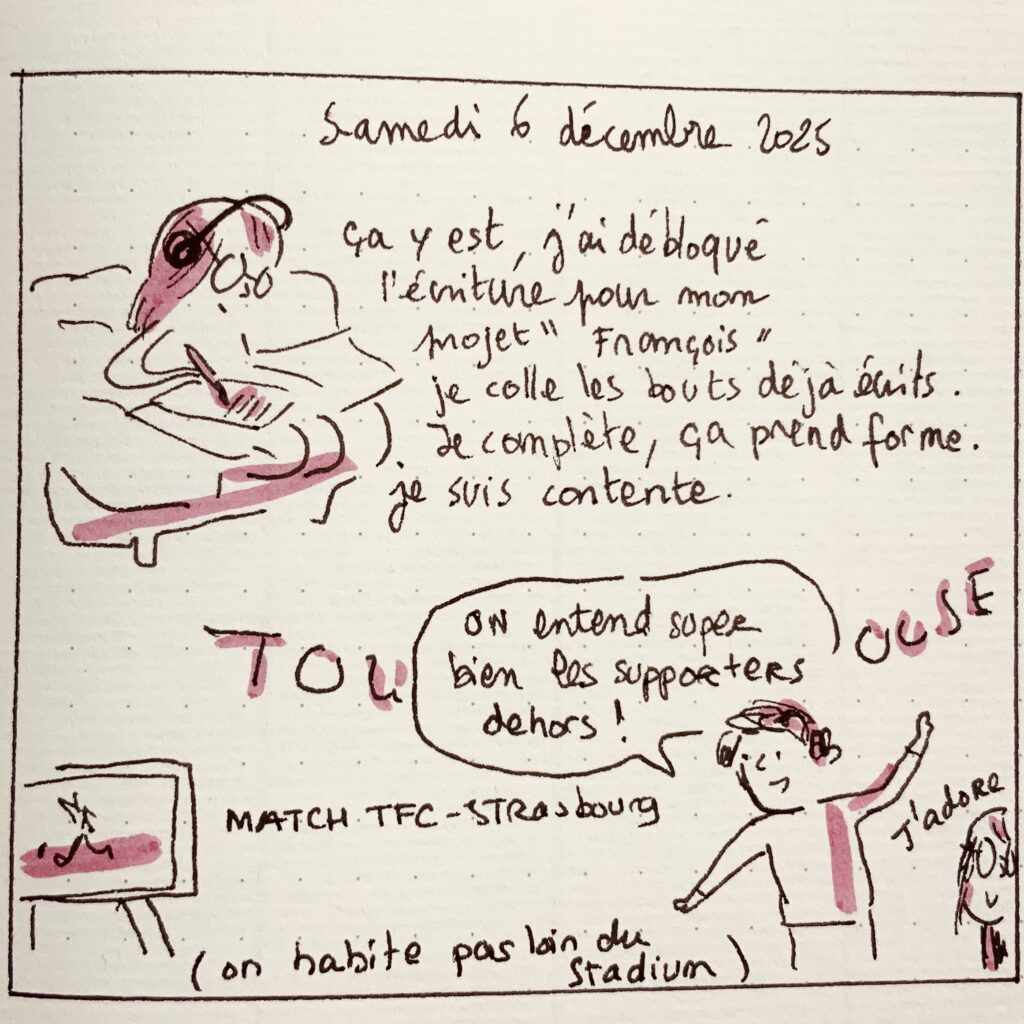 Samedi 6 décembre 2025
ça y est, j'ai débloqué
l'écriture pour mon
projet " François "
je colle les bouts déjà écrits.
Je complète, ça prend forme.
je suis contente.
TOU OUSE
ON entend super
bien les supporters
dehors !
MATCH TFC-STRasbourg
J'adore
(on habite pas loin du
Stadium)